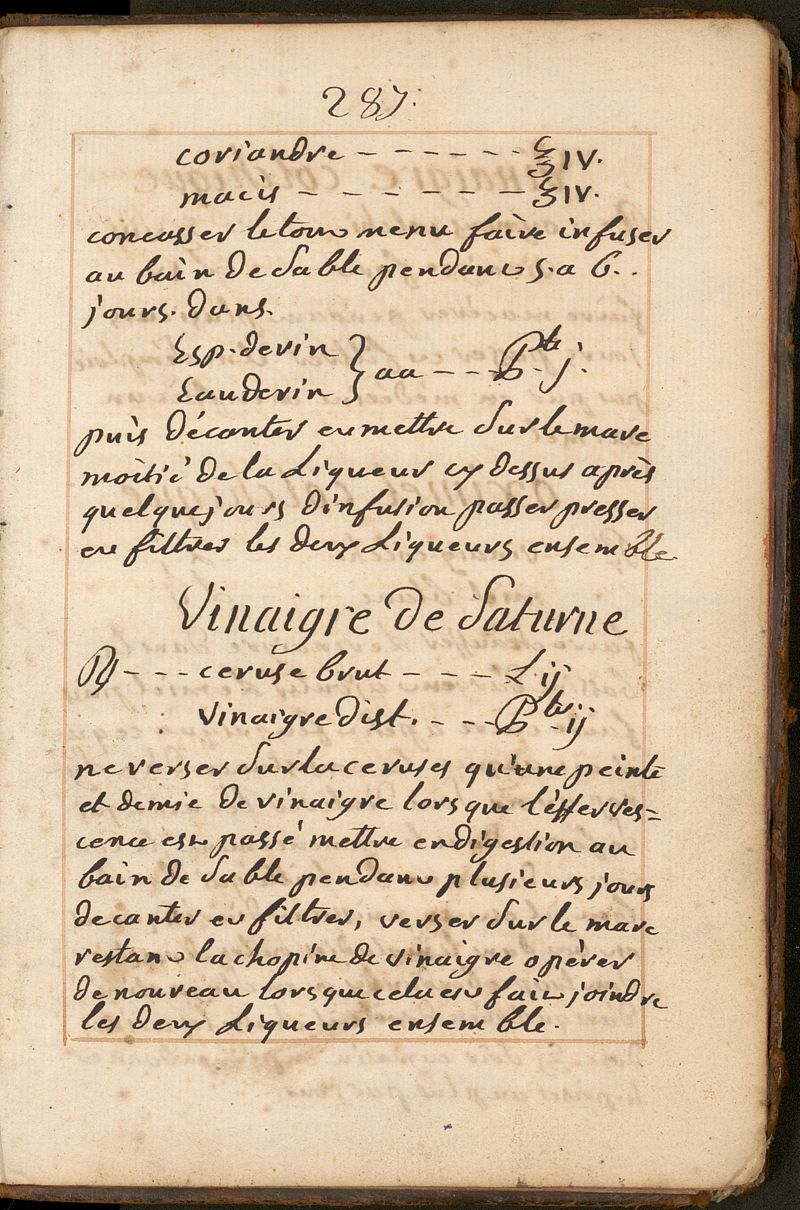 287.
coriandre - - - - - - ℥IV.
macis - - - - - - ℥IV.
concasser le tout menu faire infuser
au bain de Sable pendant 5. a 6..
jours. dans.
Esp. de vin } aa - - - Pte j.
Eau de vin
puis décanter et mettre Sur le marc
moitié de la Liqueur cy dessus après
quelque jours d'infusion passer presser
et filtrer les deux Liqueurs ensemble
Vinaigre de Saturne
℞ - - - ceruse brut - - - L ij
Vinaigre dist. - - - Pte ij
ne verser Sur la ceruses qu'une peinte
et demie de vinaigre lorsque l'efferves=
cence est passé mettre en digestion au
bain de Sable pendant plusieurs jours
decanter et filtrer, verser Sur le marc
restant la chopine de vinaigre opèrer
de nouveau lorsque cela est fait joindre
les deux Liqueurs ensemble.